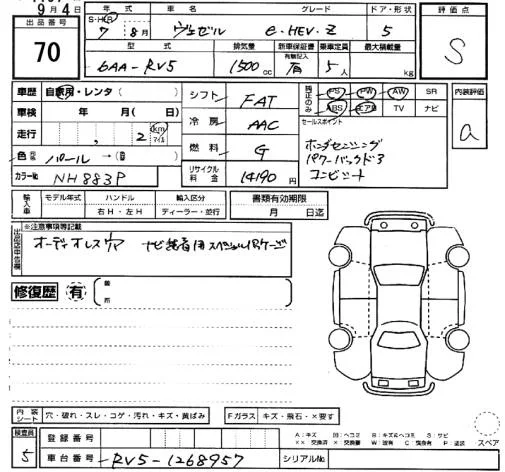 9月4日
出品番号
70
年式 車名 グレード ドア・形状 評価点
S・H・R 7年 8月 ヴェゼル e・HEV・Z 5 S
型式 排気量 新車保証書 乗車定員 最大積載量
有無記入
6AA-RV5 1500cc 有 5人 kg
車歴 自家用・レンタ( )
車検 年 月( 日)
走行 , 2 km マイル
色 パール→( )
カラーNo NH883P
シフト FAT
冷房 AAC
燃料 G
リサイクル料金 14190円
純正のみ PS PW AW SR
ABS エアB TV ナビ
内装評価
a
セールスポイント
ホンダセンシング
パワーバックドア
コンビシート
輸入車 モデル年式 ハンドル 輸入区分
右H・左H ディーラー・並行
書類有効期限
月 日迄
※注意事項等記載
出品店申告欄
オーディオレス車 ナビ装着用スペシャルパッケージ
修復歴 有 箇所
内装シート 穴・破れ・スレ・コゲ・汚れ・キズ・黄ばみ
Fガラス キズ・飛石・×要す
スペア
検査員
5
登録番号
車台番号 RV5-1268957
シリアルNo
A:キズ U:ヘコミ B:キズ&ヘコミ S:サビ
××:交換済 ×:交換要 W:波有 C:腐食有 P:塗装